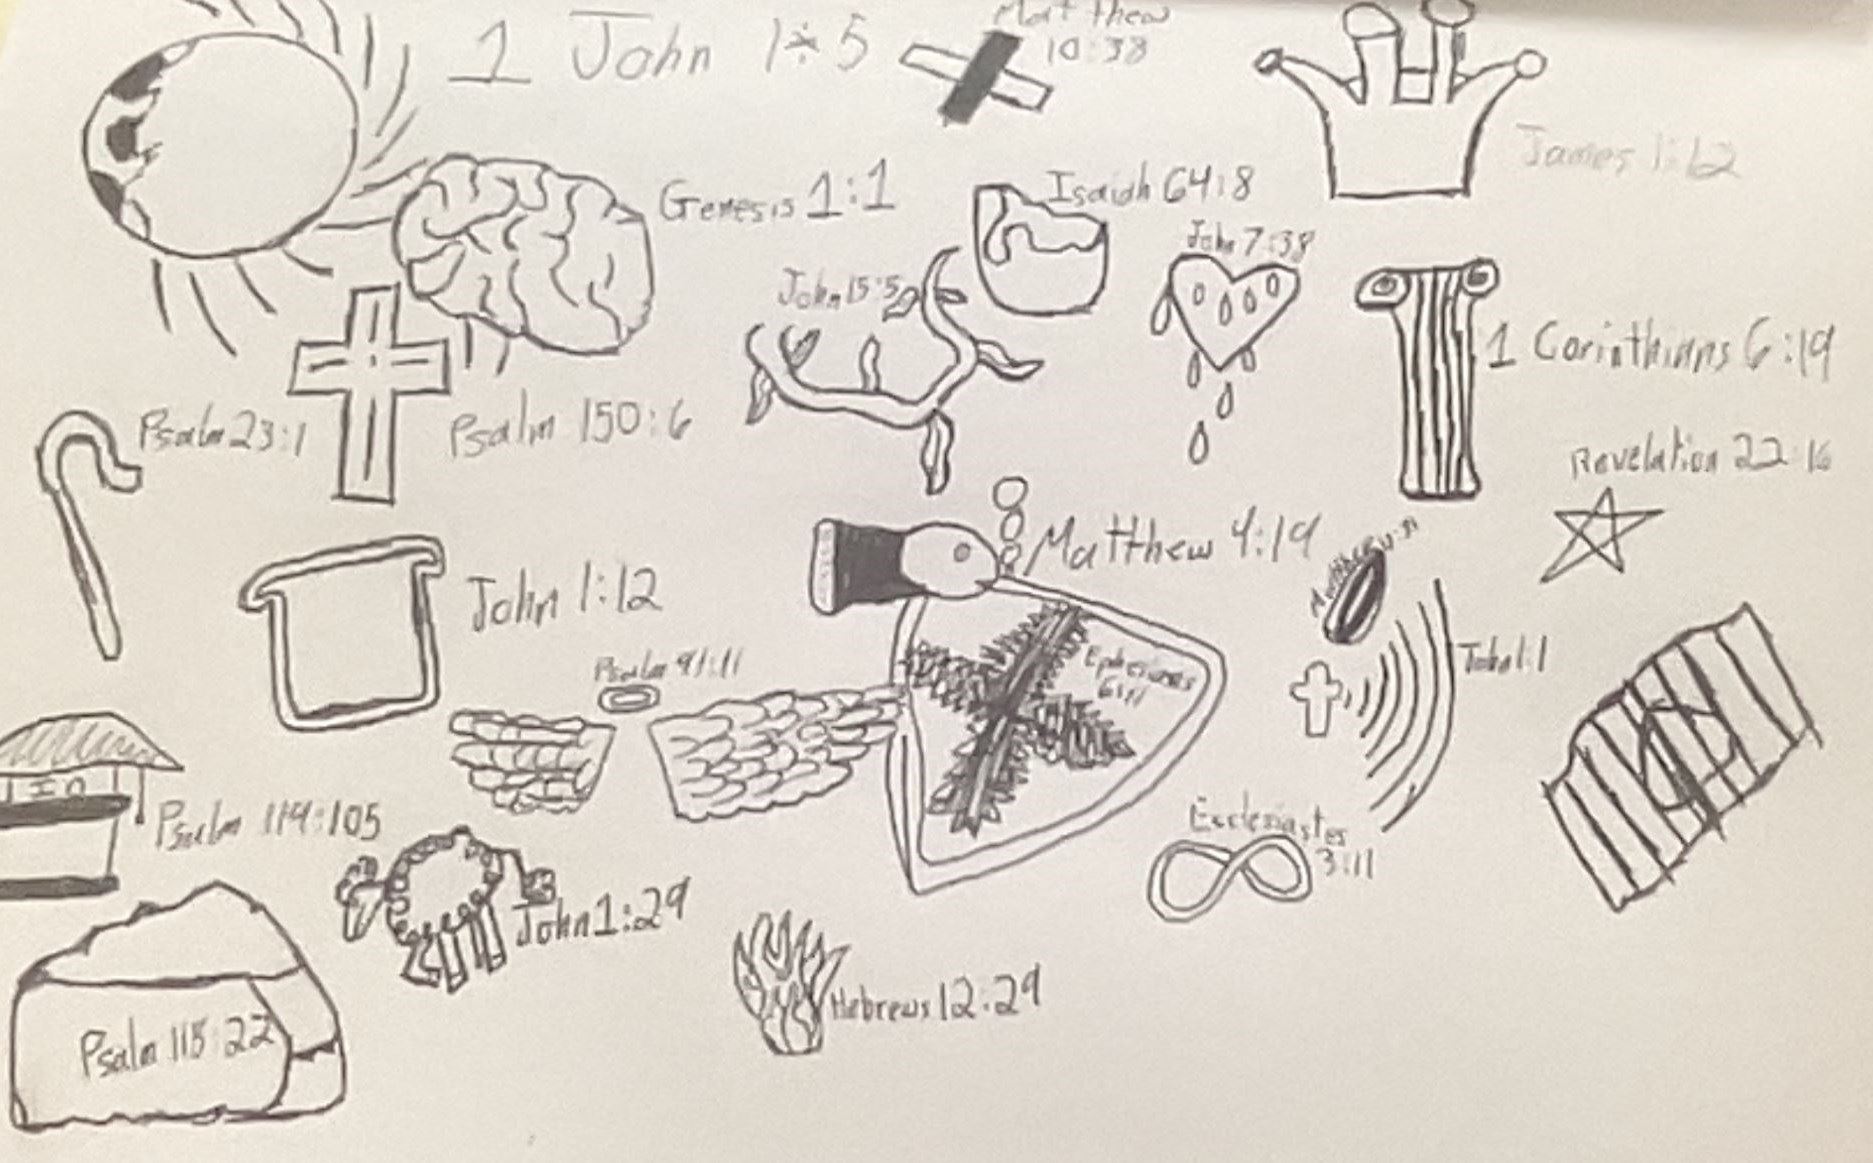 1 John 1:5
Matthew
10:38
James 1:12
Genesis 1:1
Isaiah 64:8
John 7:38
John 15:5
1 Corinthians 6:19
Psalm 23:1
Psalm 150:6
Revelation 22:16
Matthew 4:19
John 1:12
Psalm 91:11
Ephesians
6:11
John 1:1
Psalm 119:105
Ecclesiastes
3:11
John 1:29
Hebrews 12:29
Psalm 118:22